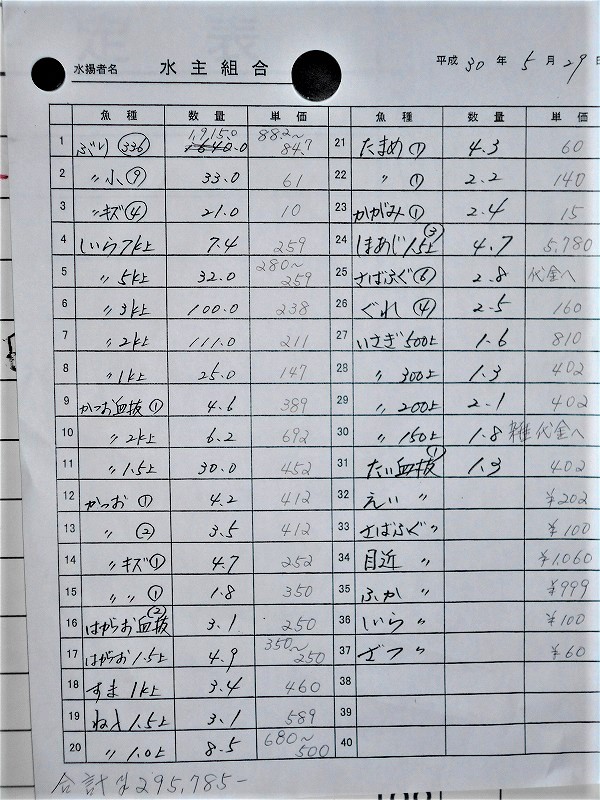 水揚者名 水主組合 平成 30 年 5 月 29 日
魚種 数量 単価
1 ぶり (336) 1,915.0 882〜847
2 〃小 (9) 33.0 61
3 〃キズ (4) 21.0 10
4 しいら7k上 7.4 259
5 〃5k上 32.0 280〜259
6 〃3k上 100.0 238
7 〃2k上 111.0 211
8 〃1k上 25.0 147
9 かつお血抜 (1) 4.6 389
10 〃2k上 6.2 692
11 〃1.5上 30.0 452
12 かつお (1) 4.2 412
13 〃 (2) 3.5 412
14 〃キズ (1) 4.7 252
15 〃 〃 (1) 1.8 350
16 はがらお血抜 (2) 3.1 250
17 はがらお1.5上 4.9 350〜250
18 すま 1k上 3.4 460
19 1.5上 3.1 589
20 〃 1.0上 8.5 680〜500
魚種 数量 単価
21 たまめ (1) 4.3 60
22 〃 (1) 2.2 140
23 かがみ (1) 2.4 15
24 しまあじ1.5上 (3) 4.7 5,780
25 さばふぐ (6) 2.8 代金へ
26 ぐれ (4) 2.5 160
27 いさぎ500上 1.6 810
28 〃 300上 1.3 402
29 〃 200上 2.1 402
30 〃 150上 1.8 雑代金へ
31 たい血抜 (1) 1.3 402
32 えい 〃 ¥202
33 さばふぐ〃 ¥100
34 目近 〃 ¥1,060
35 ふか 〃 ¥999
36 しいら 〃 ¥100
37 ざつ 〃 ¥60
38
39
40
合計 ¥295,785-